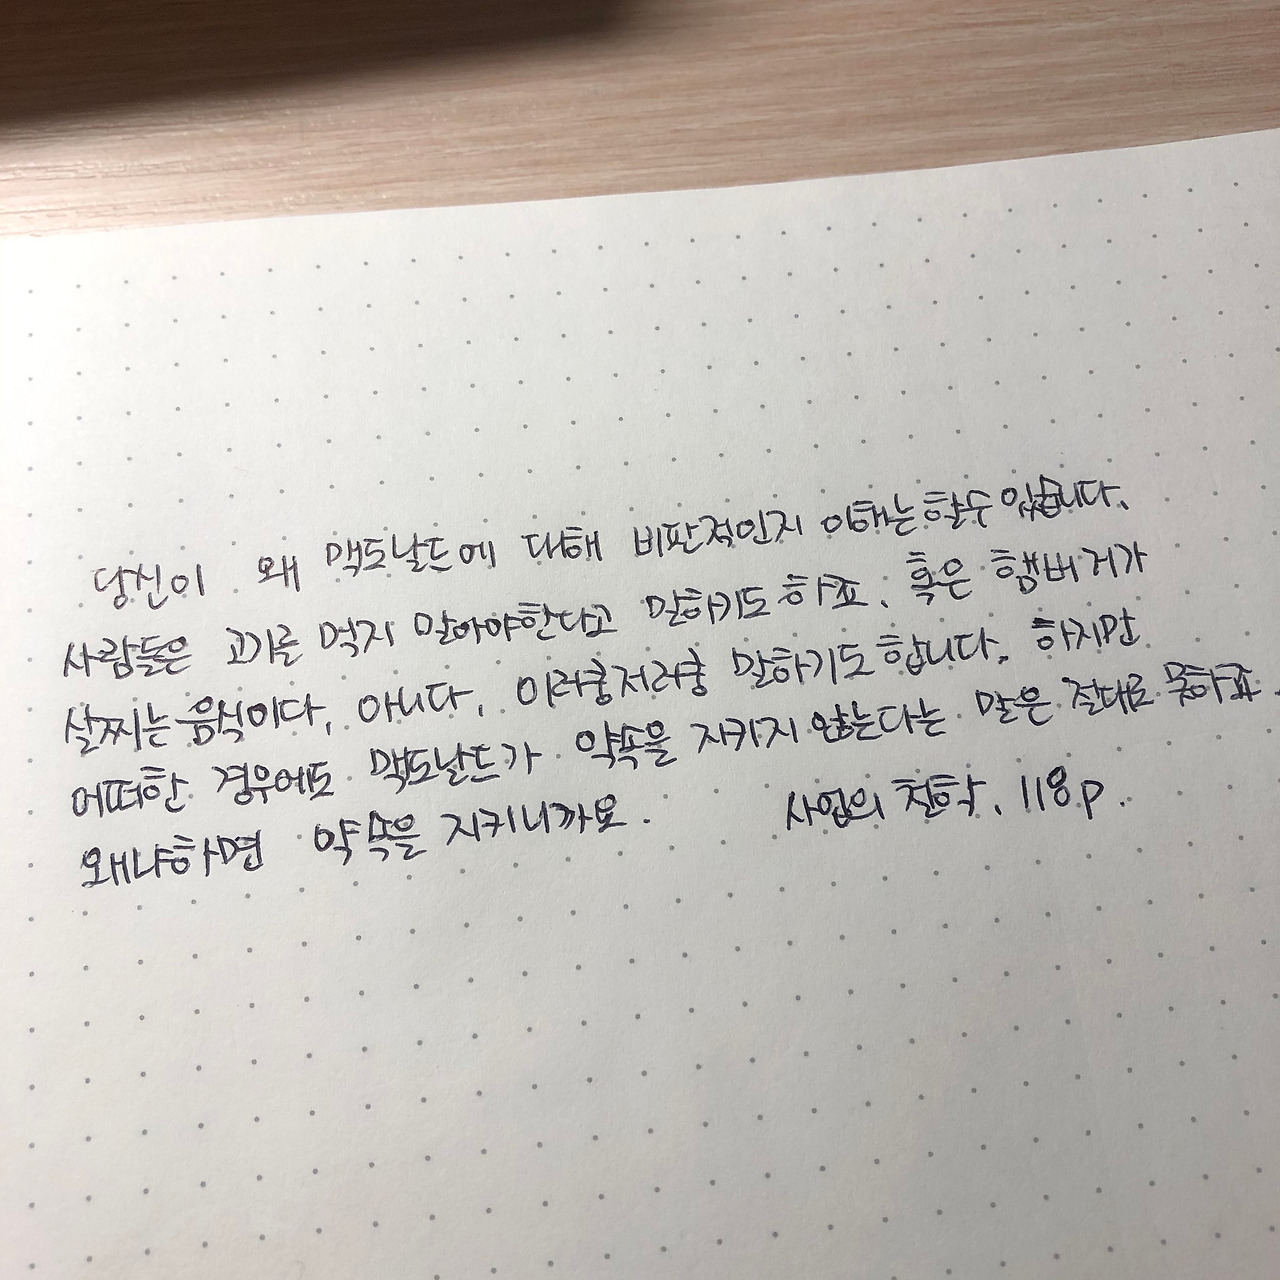 당신이 왜 맥도날드에 대해 비판적인지 이해는 할수 있습니다.
사람들은 고기를 먹지 말아야한다고 말하기도 하죠. 혹은 햄버거가
살찌는 음식이다, 아니다, 이러쿵저러쿵 말하기도 합니다. 하지만
어떠한 경우에도 맥도날드가 약속을 지키지 않는다는 말은 절대로 못하죠.
왜냐하면 약속을 지키니까요. 사업의 철학, 118p.